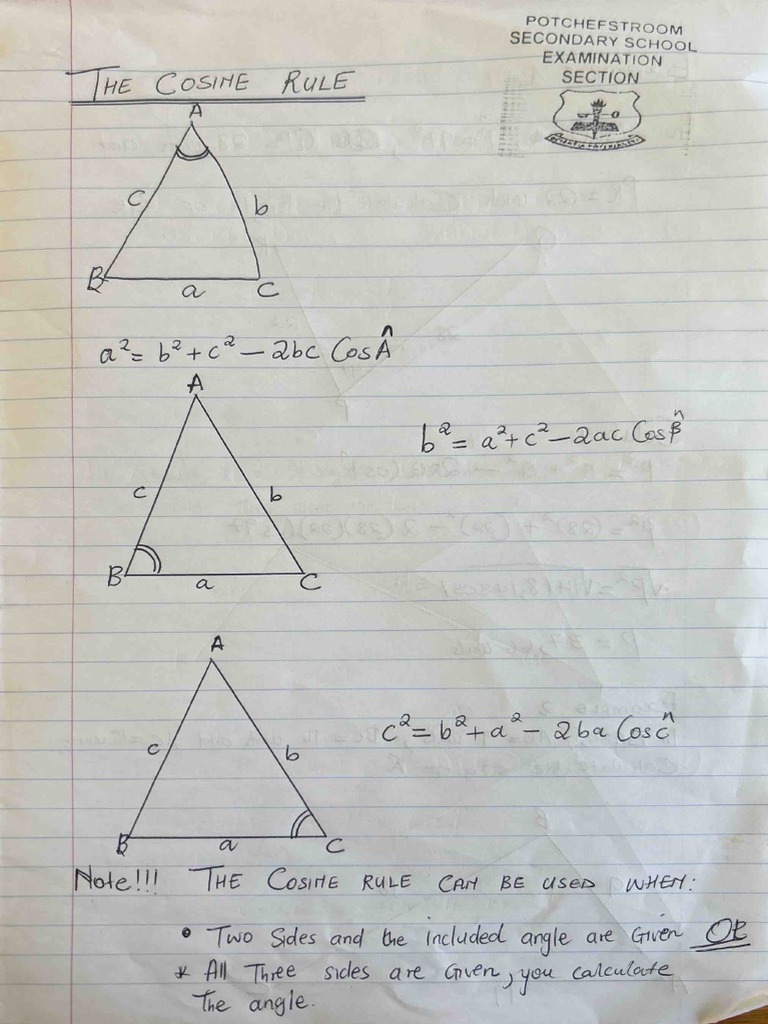 POTCHEFSTROOM
SECONDARY SCHOOL
EXAMINATION
SECTION
THE COSINE RULE
A
c
b
B
a
C
a² = b² + c² − 2bc Cos Â
A
b² = a² + c² − 2ac Cos B̂
c
b
B
a
C
A
c² = b² + a² − 2ba Cos Ĉ
c
b
B
a
C
Note!!! THE COSINE RULE CAN BE USED WHEN:
• Two Sides and the included angle are Given OR
* All Three sides are Given, you calculate
the angle.